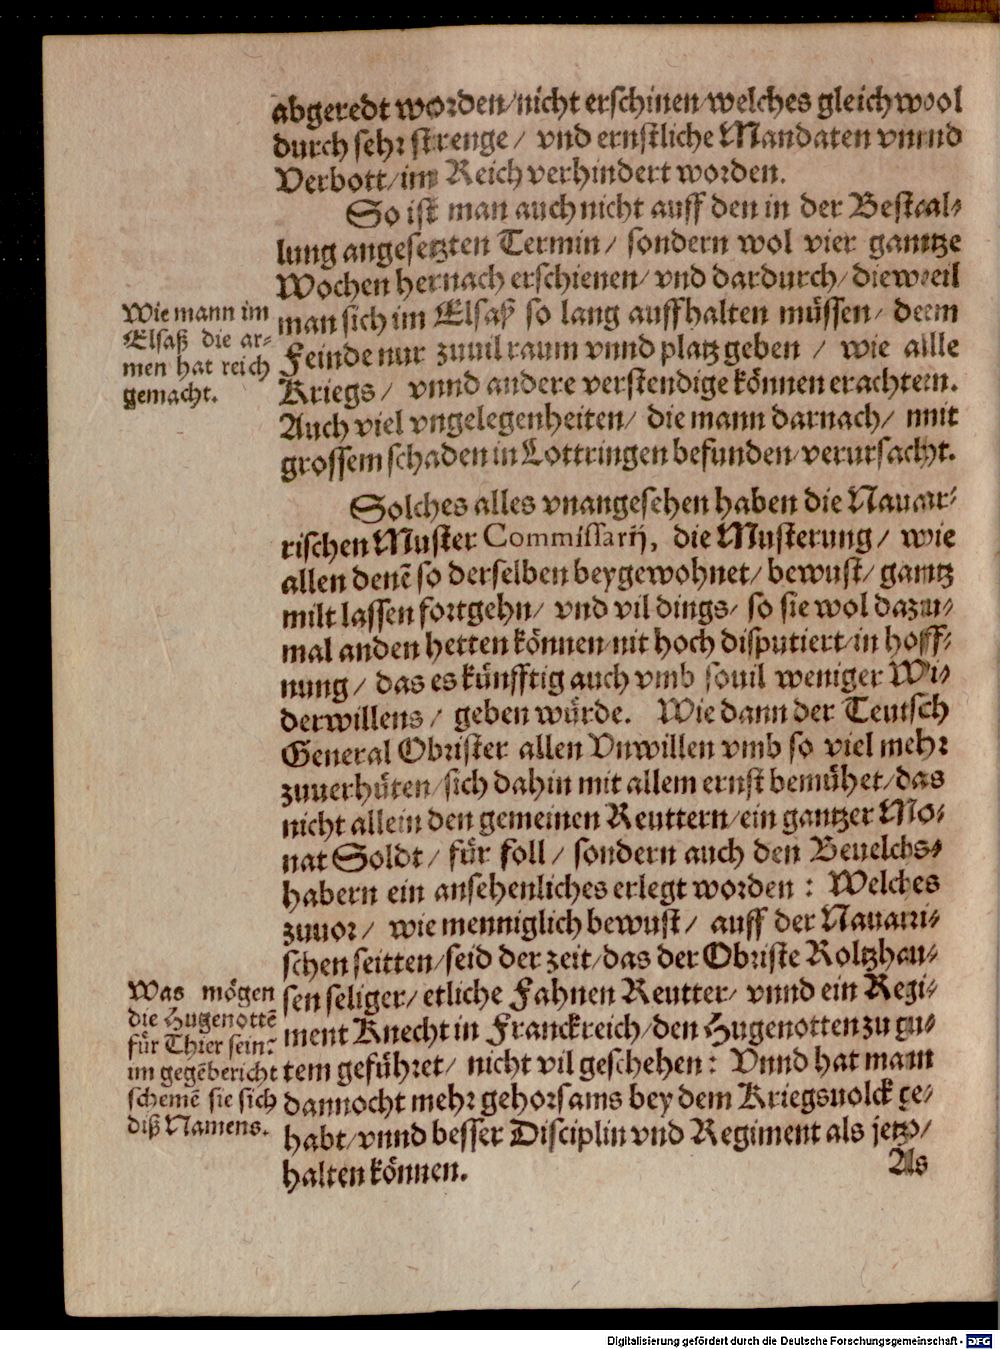 abgeredt worden/nicht erschinen/welches gleichwool
durch sehr strenge/ vnd ernstliche Mandaten vnnd
Verbott/im Reich verhindert worden.
So ist man auch nicht auff den in der Bestaal-
lung angesetzten Termin/ sondern wol vier gantze
Wochen hernach erschienen/ vnd dardurch/ dieweil
Wie mann im
Elsaß die ar-
men hat reich
gemacht.
man sich im Elsaß so lang auffhalten müssen/ deem
Feinde nur zuuil raum vnnd platz geben / wie allle
Kriegs/ vnnd andere verstendige können erachten.
Auch viel vngelegenheiten/ die mann darnach/ mit
grossem schaden in Lottringen befunden/verursacht.
Solches alles vnangesehen haben die Nauar-
rischen Muster Commissarij, die Musterung/ wie
allen denē so derselben beygewohnet/ bewust/ gantz
milt lassen fortgehn/ vnd vil dings/ so sie wol dazu-
mal anden hetten können/nit hoch disputiert/in hoff-
nung/ das es künfftig auch vmb souil weniger Wi-
derwillens/ geben würde. Wie dann der Teutsch
General Obrister allen Vnwillen vmb so viel mehr
zuuerhüten/sich dahin mit allem ernst bemühet/das
nicht allein den gemeinen Reuttern/ein gantzer Mo-
nat Soldt/ für foll/ sondern auch den Beuelchs-
habern ein ansehenliches erlegt worden: Welches
zuuor/ wie menniglich bewust/ auff der Nauarri-
schen seitten/seid der zeit/das der Obriste Roltzhau-
Was mögen
die Hugenottē
für Thier sein:
im gegēbericht
schemē sie sich
diß Namens.
sen seliger/etliche Fahnen Reutter/ vnnd ein Regi-
ment Knecht in Franckreich/den Hugenotten zu gu-
tem geführet/ nicht vil geschehen: Vnnd hat mann
dannocht mehr gehorsams bey dem Kriegsuolck ge-
habt/vnnd besser Disciplin vnd Regiment als jetzo/
halten können.
As
Digitalisierung gefördert durch die Deutsche Forschungsgemeinschaft - DFG